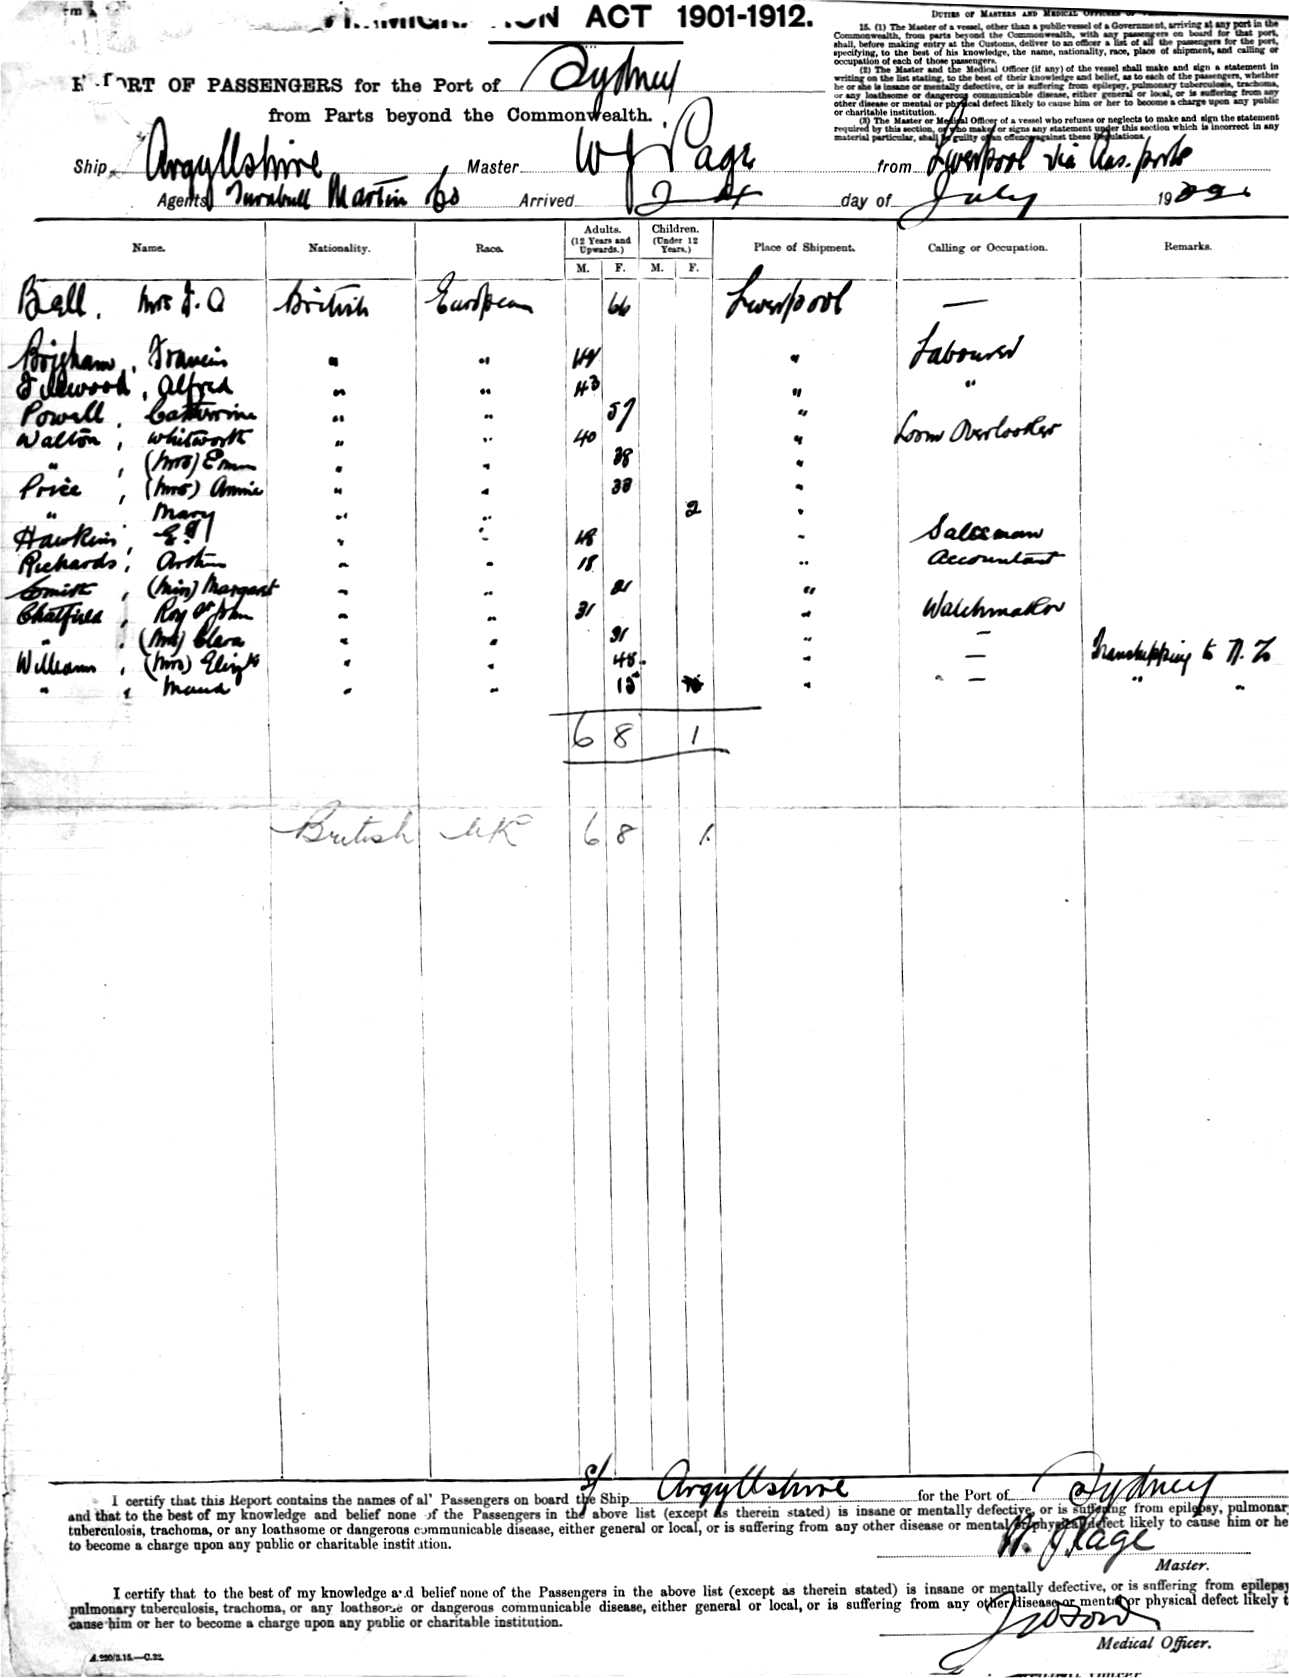 ACT 1901-1912.
DUTIES OF MASTERS AND MEDICAL
15. (1) The Master of a vessel, other than a public vessel of a Government, arriving at any port in the
Commonwealth, from parts beyond the Commonwealth, with any passengers on board for that port,
shall, before making entry at the Customs, deliver to an officer a list of all the passengers for the port,
specifying, to the best of his knowledge, the name, nationality, race, place of shipment, and calling or
occupation of each of those passengers.
(2) The Master and the Medical Officer (if any) of the vessel shall make and sign a statement in
writing on the list stating, to the best of their knowledge and belief, as to each of the passengers, whether
he or she is insane or mentally defective, or is suffering from epilepsy, pulmonary tuberculosis, trachoma,
or any loathsome or dangerous communicable disease, either general or local, or is suffering from any
other disease or mental or physical defect likely to cause him or her to become a charge upon any public
or charitable institution.
(3) The Master or Medical Officer of a vessel who refuses or neglects to make and sign the statement
required by this section, or who makes or signs any statement under this section which is incorrect in any
material particular, shall be guilty of an offence against these Regulations.
PORT OF PASSENGERS for the Port of Sydney
from Parts beyond the Commonwealth.
Ship Argyllshire Master W J Page from Liverpool via Aus. ports
Agents Turnbull Martin & Co Arrived 24 day of July 19
Name. Nationality. Race. Adults. (12 Years and Upwards.) Children. (Under 12 Years.) Place of Shipment. Calling or Occupation. Remarks.
M. F. M. F.
Ball, Mrs F. A British European 66 Liverpool —
Brigham, Francis " " 44 " Labourer
Fullwood, Alfred " " 43 " "
Powell, Catherine " " 57 "
Walton, Whitworth " " 40 " Loom Overlooker
" , (Mrs) Emma " " 38 "
Price, (Mrs) Annie " " 33 "
" Mary " " 2 "
Hawkins, " " 48 " Salesman
Richards, Arthur " " 18 " Accountant
Smith, (Miss) Margaret " " 21 "
Chatfield, Roy St John " " 31 " Watchmaker
" , (Mrs) Clara " " 31 " —
Williams, (Mrs) Elizth " " 48 " — Transhipping to N. Z
" , Maud " " 15 " — " "
6 8 1
British UK 6 8 1
I certify that this Report contains the names of all Passengers on board the S/ Ship Argyllshire for the Port of Sydney
and that to the best of my knowledge and belief none of the Passengers in the above list (except as therein stated) is insane or mentally defective, or is suffering from epilepsy, pulmonar
tuberculosis, trachoma, or any loathsome or dangerous communicable disease, either general or local, or is suffering from any other disease or mental or physical defect likely to cause him or he
to become a charge upon any public or charitable institution.
W. J Page
Master.
I certify that to the best of my knowledge and belief none of the Passengers in the above list (except as therein stated) is insane or mentally defective, or is suffering from epilepsy
pulmonary tuberculosis, trachoma, or any loathsome or dangerous communicable disease, either general or local, or is suffering from any other disease or mental or physical defect likely t
cause him or her to become a charge upon any public or charitable institution.
Medical Officer.